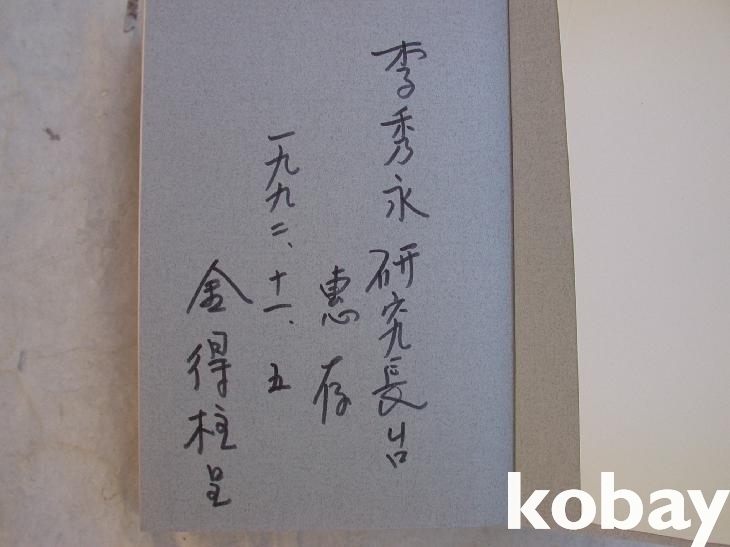 李秀永 研究長台
惠存
一九九二、十一、五
金得柱呈
kobay